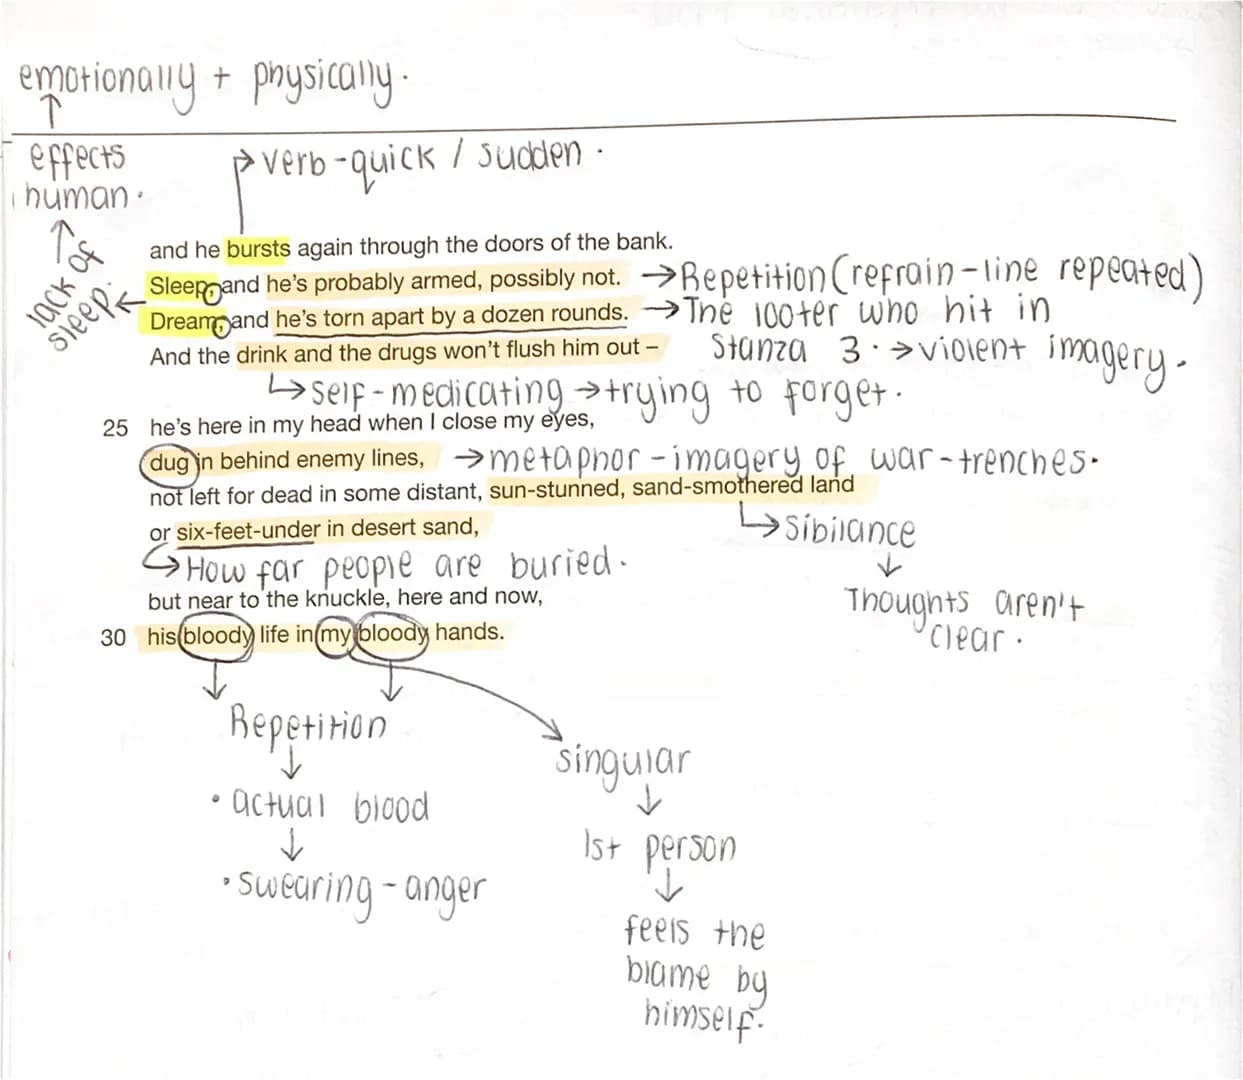 emotionally + physically.
effects
human.
verb-quick / sudden.
lack of
sleep.
and he bursts again through the doors of the bank.
Sleep, and he's probably armed, possibly not. → Repetition (refrain-line repeated)
Dream, and he's torn apart by a dozen rounds. → The looter who hit in
Stanza 3. → violent imagery.
And the drink and the drugs won't flush him out –
self-medicating → trying to forget.
25 he's here in my head when I close my eyes,
dug in behind enemy lines, → metaphor - imagery of war-trenches.
not left for dead in some distant, sun-stunned, sand-smothered land
Sibilance
Thoughts aren't
clear.
or six-feet-under in desert sand,
How far people are buried.
but near to the knuckle, here and now,
30 his bloody life in my bloody hands.
Repetition
• actual blood
• swearing - anger
singular
1st person
feels the
blame by
himself.